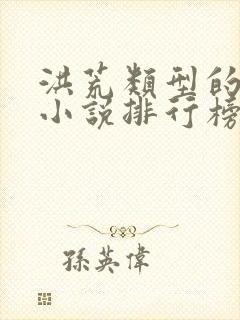 洪荒類型的
小說排行榜
孫英偉